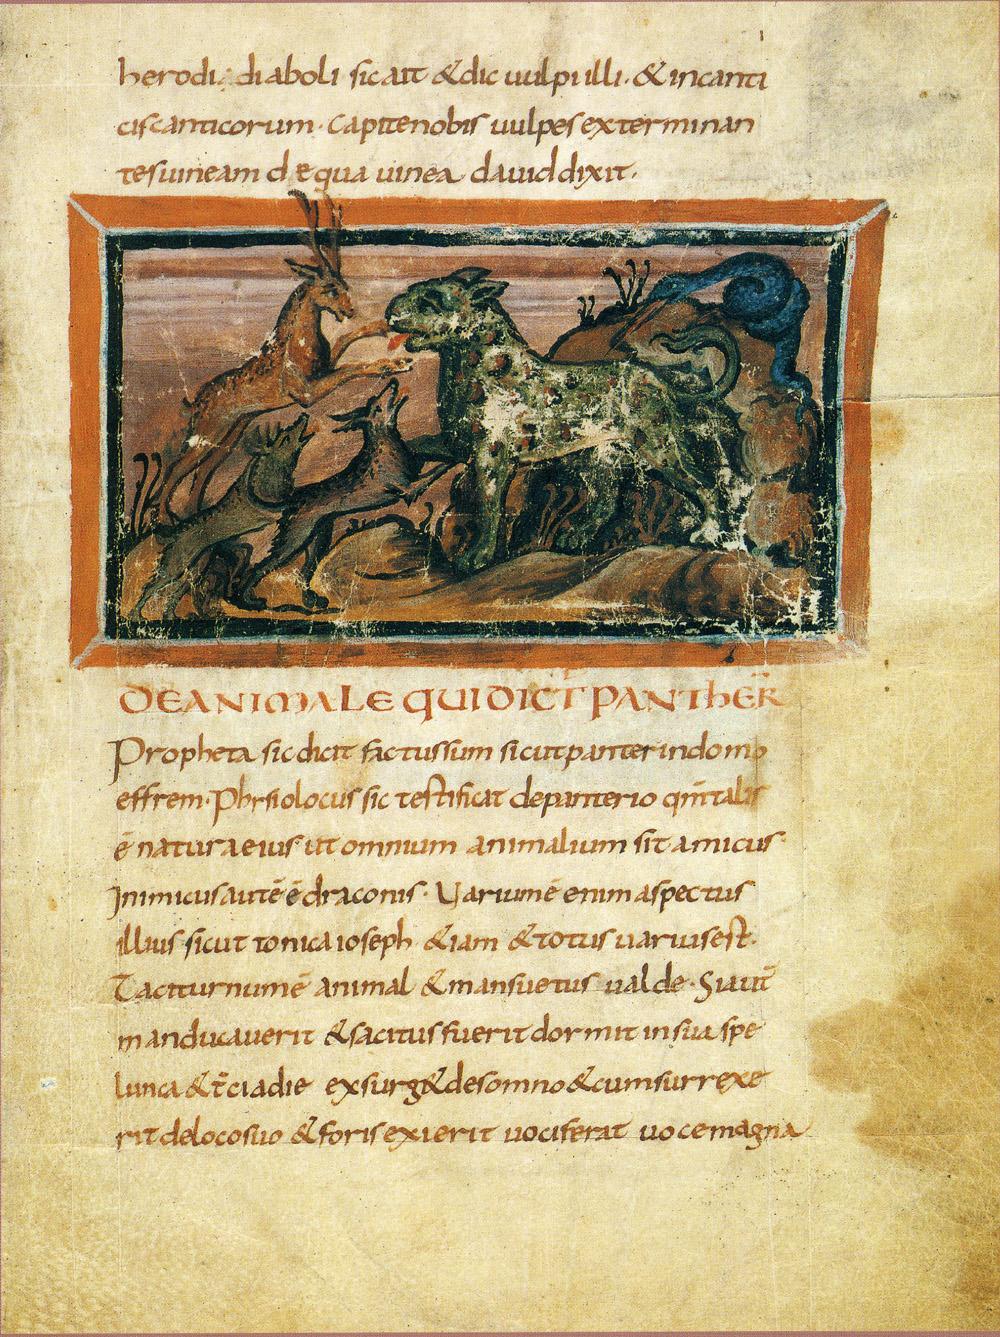 herodi diaboli sicait &dic uulpi illi · & incanti
ciscanticorum · capitenobis uulpes exterminan
tesuineam dequa uinea dauid dixit ·
DEANIMALE QUI DICT̄ PANThER̄
Propheta sic dicit factus sum sicut panter in domo
effrem · Phisiolocus sic testificat de panterio qm̄ talis
ē natura eius ut omnium animalium sit amicus
Inimicus autē ē draconis · Uariumē enim aspectus
illius sicut tonica ioseph &iam &totus uariusest ·
Taciturnumē animal &mansuetus ualde · Siaut̄
manducauerit &sacitus fuerit dormit in sua spe
lunca &t̄ciadie exsurg& de somno &cum surrexe
rit de loco suo &foris exierit uociferat uoce magna